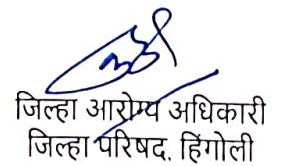 जिल्हा आरोग्य अधिकारी
जिल्हा परिषद, हिंगोली